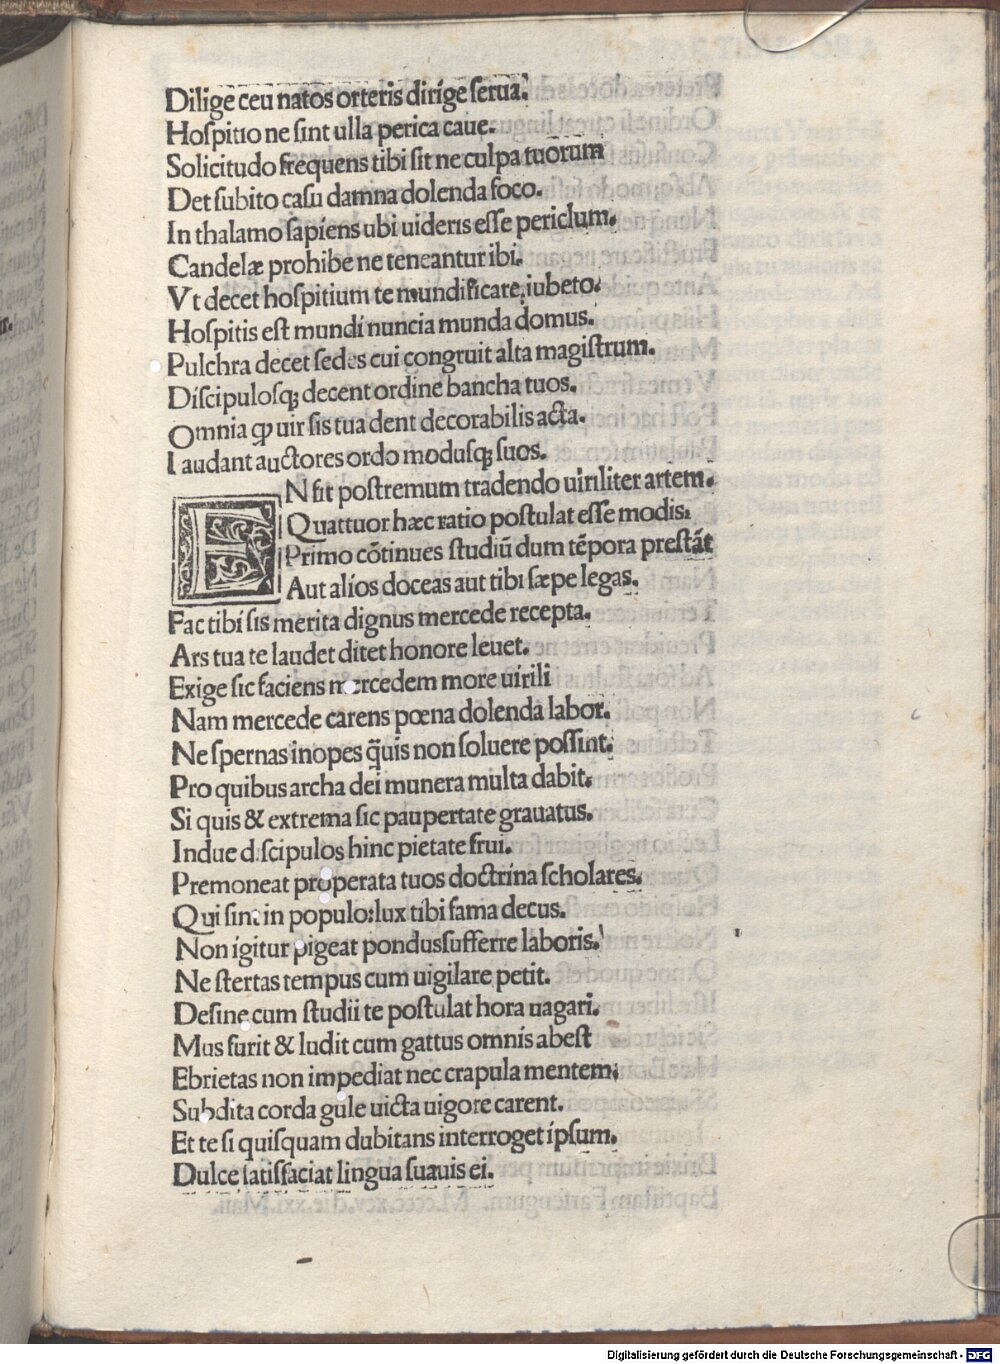 Dilige ceu natos orteris dirige ſerua.
Hoſpitio ne ſint ulla perica caue.
Solicitudo frequens tibi ſit ne culpa tuorum
Det ſubito caſu damna dolenda foco.
In thalamo ſapiens ubi uideris eſſe periclum.
Candelæ prohibe ne teneantur ibi.
Vt decet hoſpitium te mundificare, iubeto.
Hoſpitis eſt mundi nuncia munda domus.
Pulchra decet ſedes cui congruit alta magiſtrum.
Diſcipuloſqꝫ decent ordine bancha tuos.
Omnia ꝙ uir ſis tua dent decorabilis acta.
Laudant auctores ordo moduſqꝫ ſuos.
EN fit poſtremum tradendo uiriliter artem.
Quattuor hæc ratio poſtulat eſſe modis.
Primo cõtinues ſtudiũ dum tẽpora preſtãt
Aut alios doceas aut tibi ſæpe legas.
Fac tibi ſis merita dignus mercede recepta.
Ars tua te laudet ditet honore leuet.
Exige ſic faciens mercedem more uirili
Nam mercede carens pœna dolenda labor.
Ne ſpernas inopes q̃uis non ſoluere poſſint.
Pro quibus archa dei munera multa dabit.
Si quis & extrema ſic paupertate grauatus.
Indue diſcipulos hinc pietate frui.
Premoneat properata tuos doctrina ſcholares.
Qui ſint in populo: lux tibi fama decus.
Non igitur pigeat pondus ſufferre laboris.
Ne ſtertas tempus cum uigilare petit.
Deſine cum ſtudii te poſtulat hora uagari.
Mus furit & ludit cum gattus omnis abeſt
Ebrietas non impediat nec crapula mentem.
Subdita corda gule uicta uigore carent.
Et te ſi quiſquam dubitans interroget ipſum.
Dulce ſatiſfaciat lingua ſuauis ei.
Digitalisierung gefördert durch die Deutsche Forschungsgemeinschaft - DFG